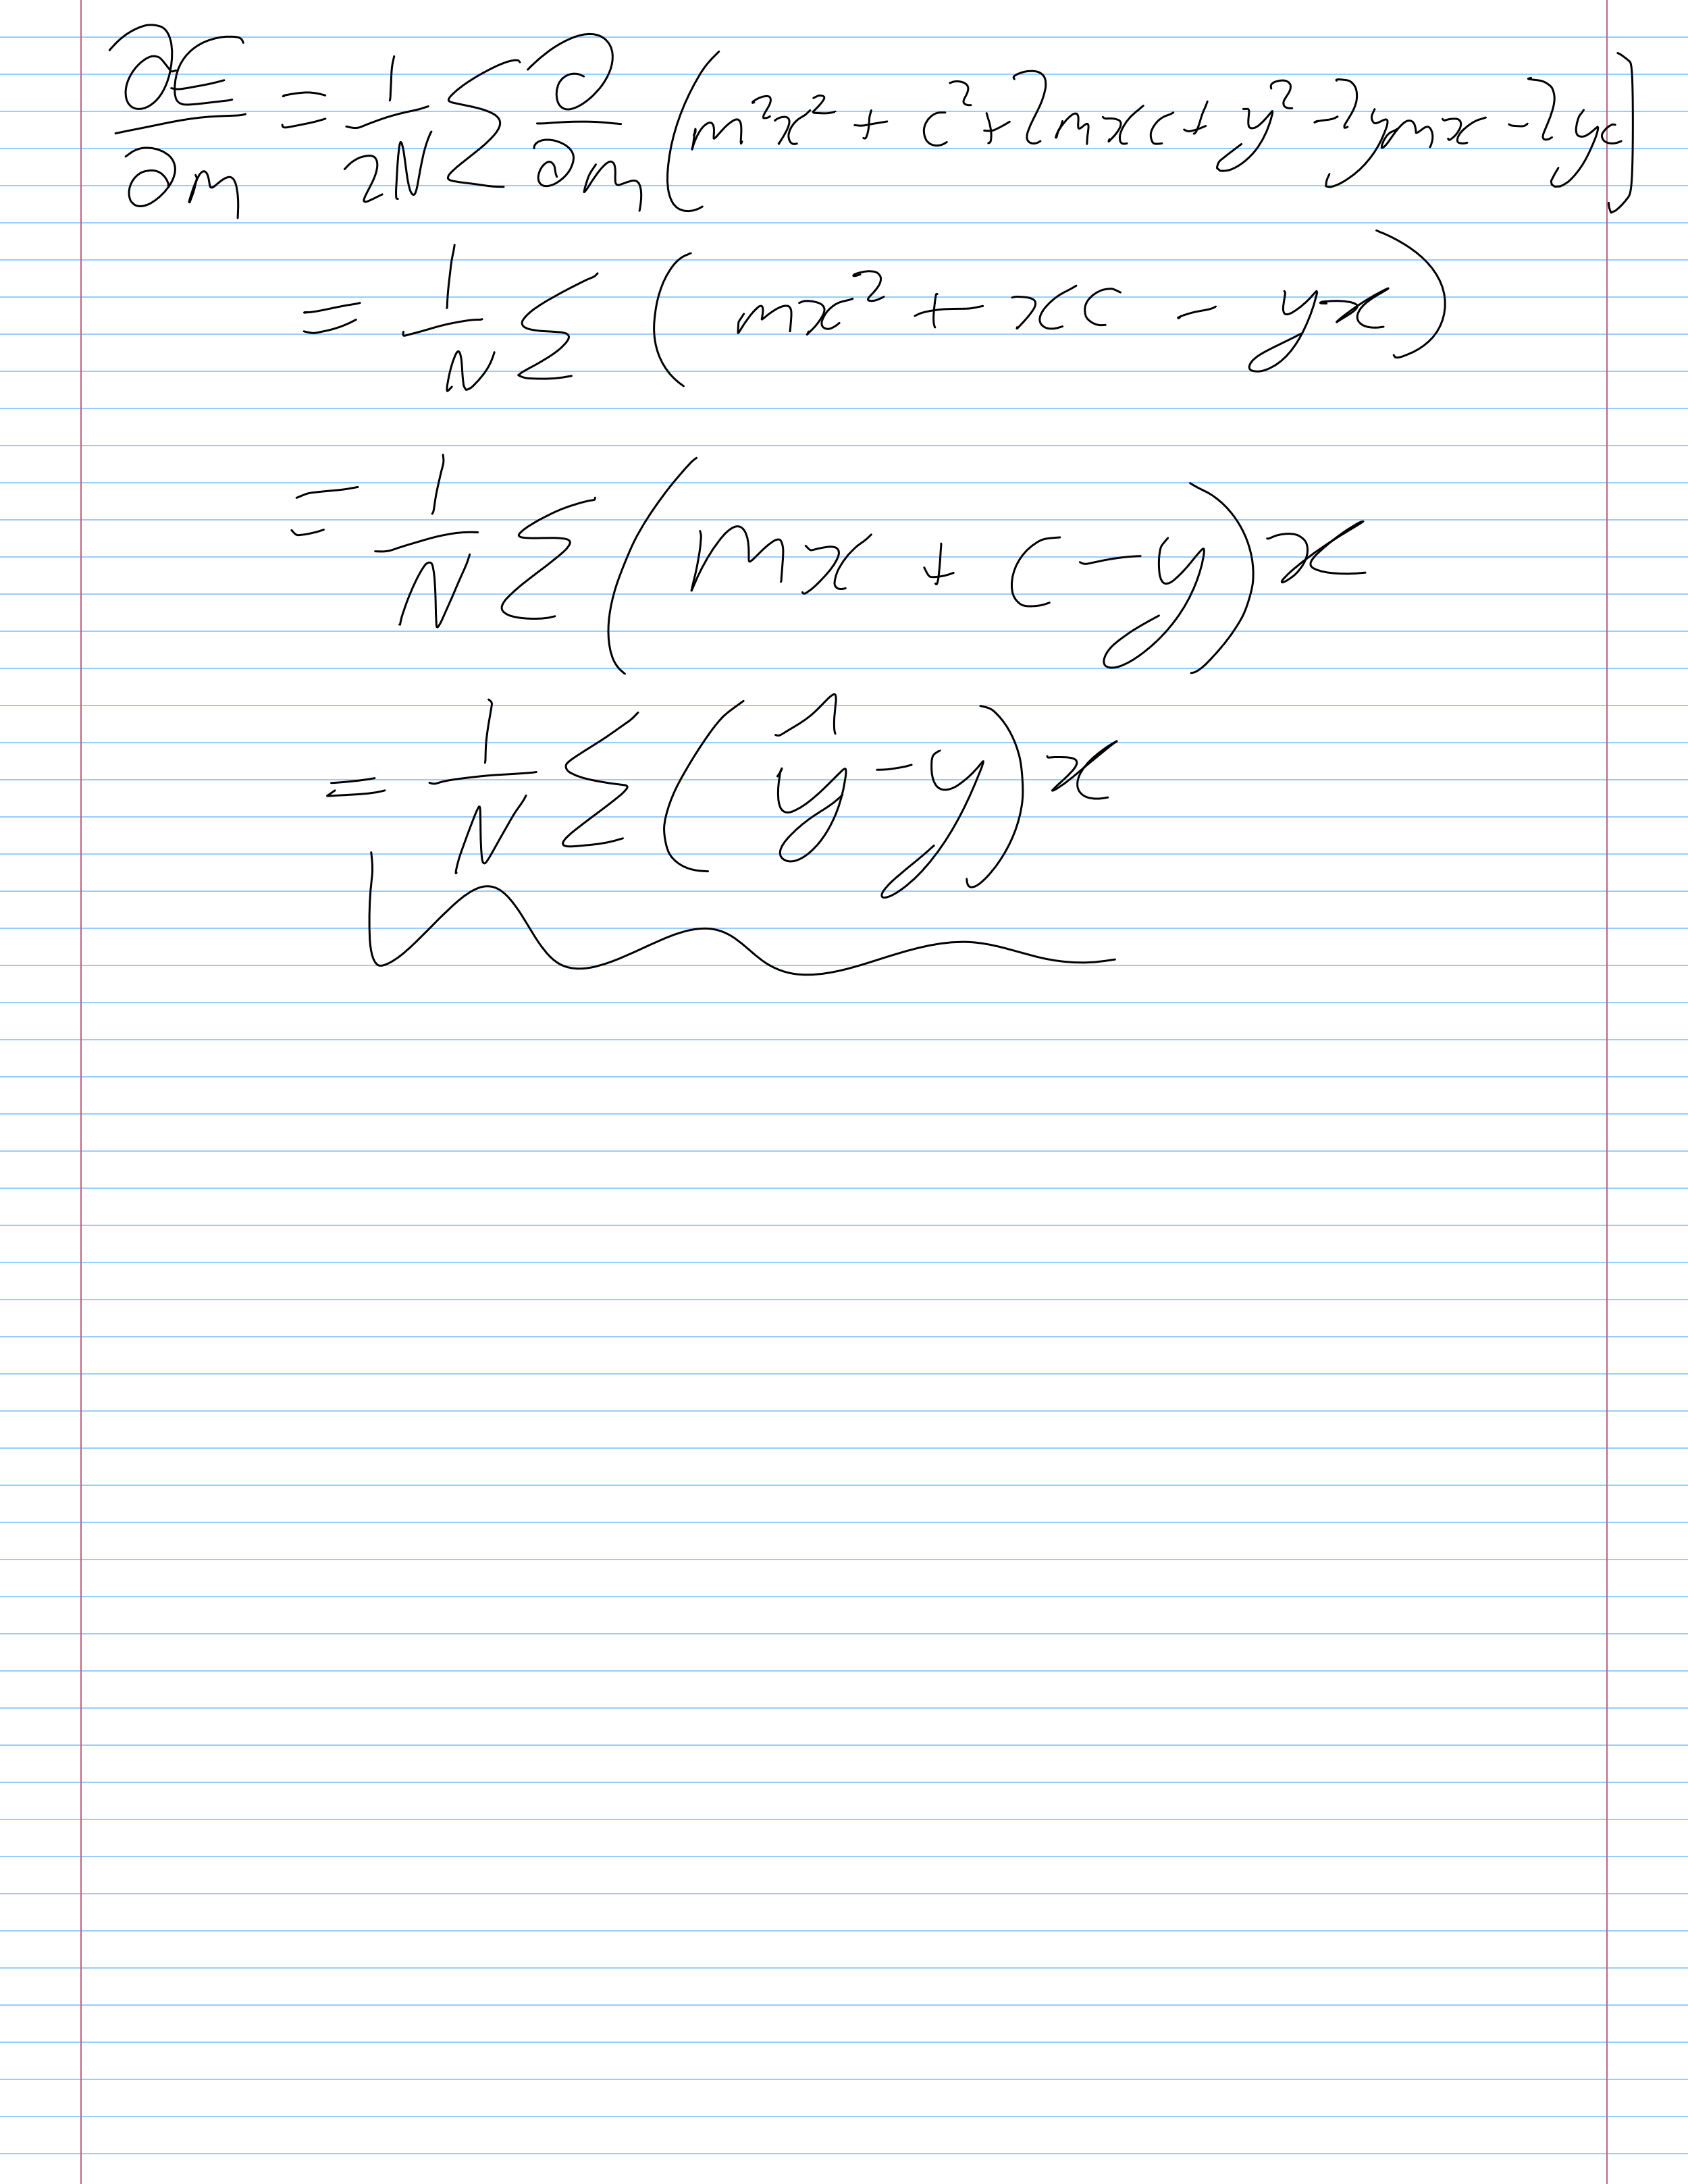 ∂E/∂m = 1/2N Σ ∂/∂m (m²x² + c² + 2mxc + y² - 2ymx - 2yc)
= 1/N Σ (mx² + xc - yx)
= 1/N Σ (mx + c - y) x
= 1/N Σ (ŷ - y) x